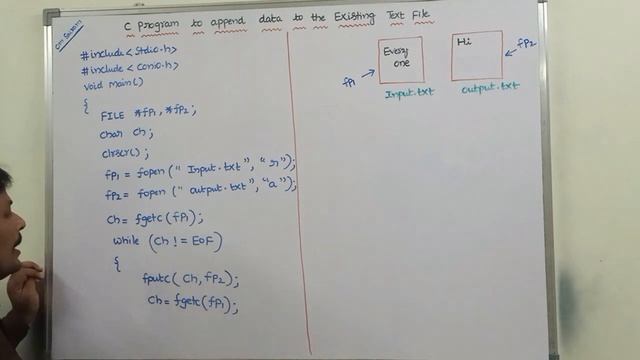 C Program to append data to the Existing Text File
Om Sairam
#include<stdio.h>
#include<conio.h>
void main()
{
FILE *fp1, *fp2;
char ch;
clrscr();
fp1 = fopen("Input.txt", "r");
fp2 = fopen("output.txt", "a");
ch = fgetc(fp1);
while (ch != EOF)
{
fputc(ch, fp2);
ch = fgetc(fp1);
Every
one
fp1
Input.txt
Hi
fp2
output.txt